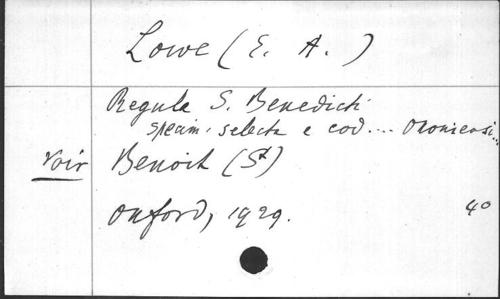 Lowe (E. A.)
Regula S. Benedicti
specim. selecta e cod.... Oxoniensi...
Voir Benoit (St)
Oxford, 1929. 4o